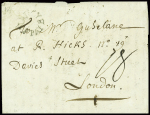 Mr Gubelane
at R. Hicks No. 19
Davies Street
London.